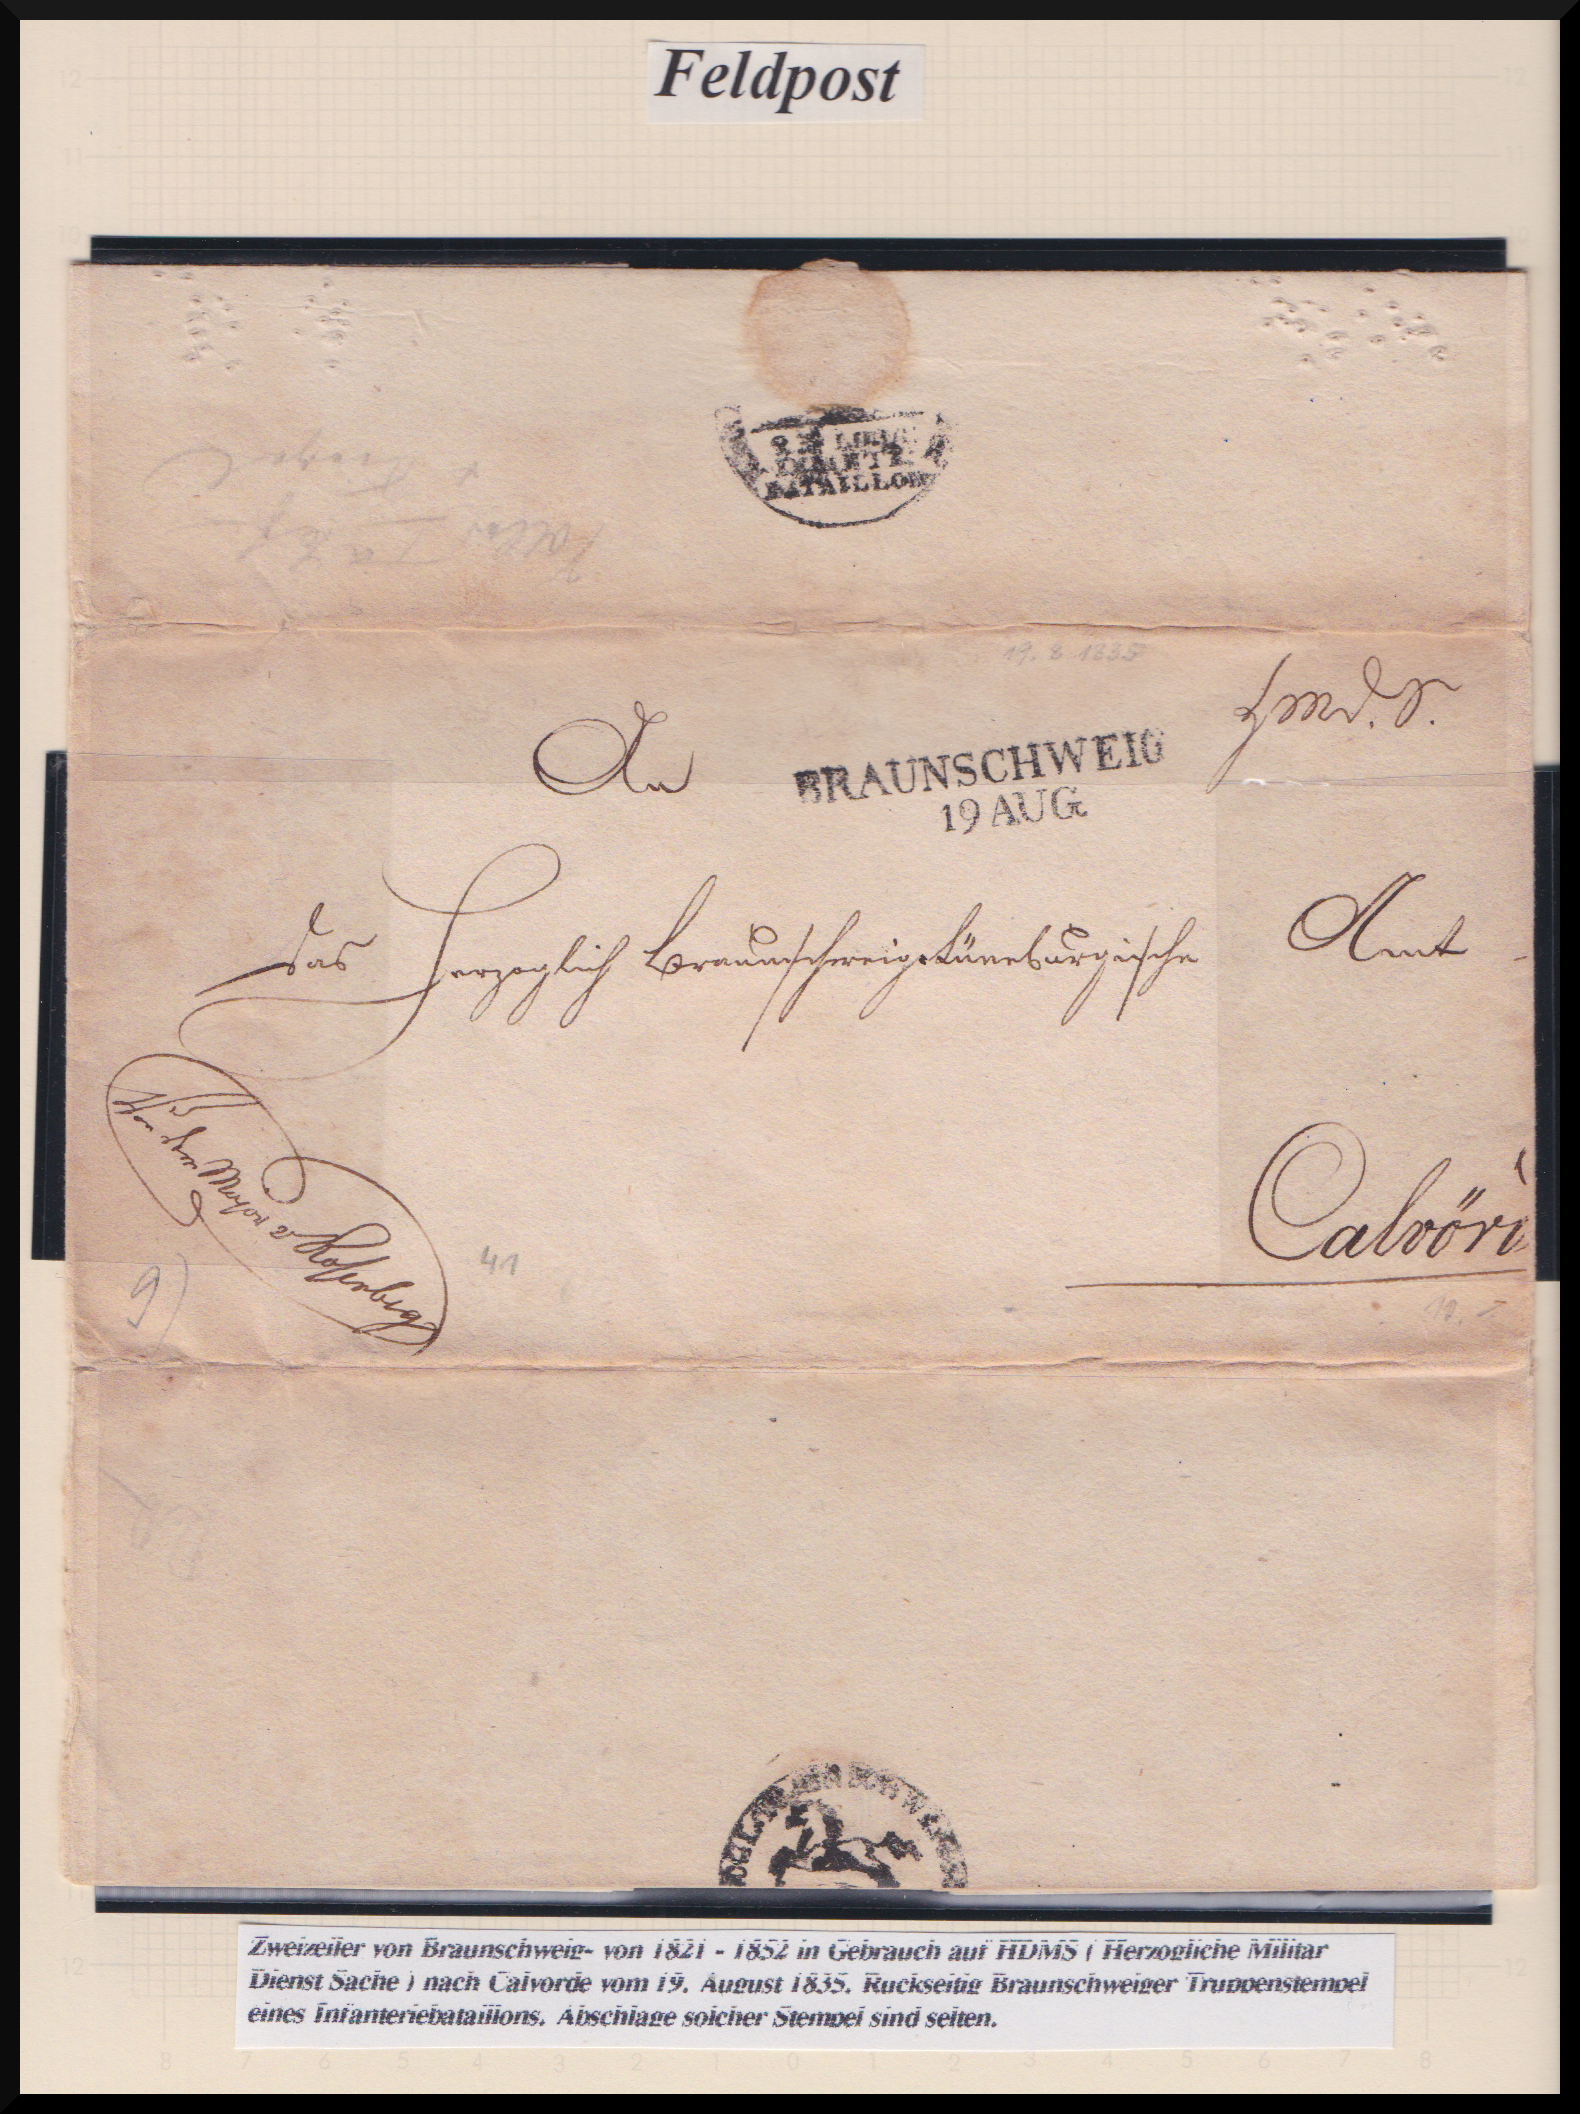 Feldpost
BATAILLON
19. 8 1835
H.M.D.S.
An
BRAUNSCHWEIG
19 AUG
das Herzoglich Braunschweig-Lüneburgische Amt
Calvör
41
9)
Zweizeiler von Braunschweig- von 1821 - 1852 in Gebrauch auf HDMS ( Herzogliche Militär
Dienst Sache ) nach Calvörde vom 19. August 1835. Rückseitig Braunschweiger Truppenstempel
eines Infanteriebataillons. Abschläge solcher Stempel sind selten.